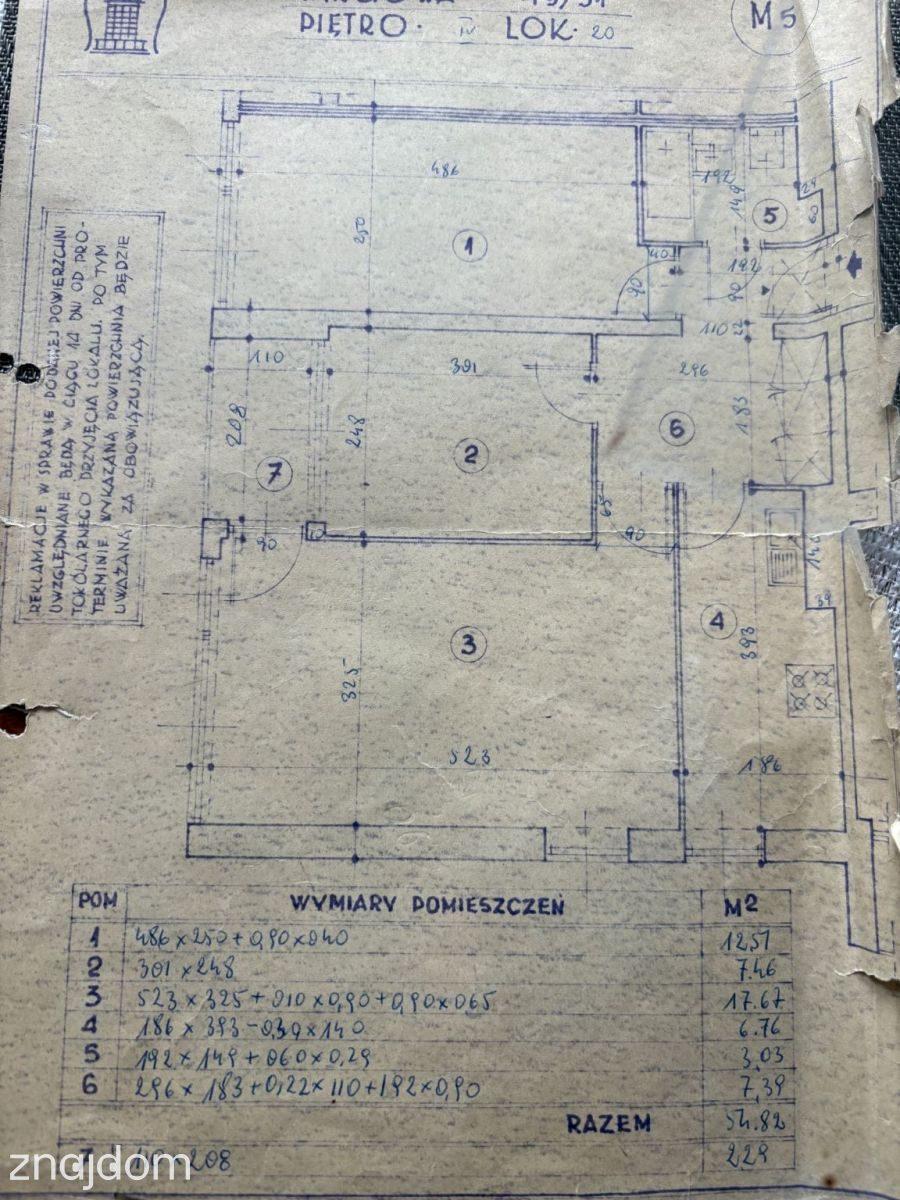 PIĘTRO· IV LOK· 20
M5
REKLAMACJE W SPRAWIE PODANEJ POWIERZCHNI
UWZGLĘDNIANE BĘDĄ W CIĄGU 14 DNI OD PRO-
TOKÓLARNEGO PRZYJĘCIA LOKALU. PO TYM
TERMINIE WYKAZANA POWIERZCHNIA BĘDZIE
UWAŻANA ZA OBOWIĄZUJĄCĄ.
486
192
149
29
60
5
250
1
40
90
192
90
110
22
110
301
296
208
248
183
6
2
7
65
90
10
90
140
39
3
4
393
325
523
186
POM WYMIARY DOMIESZCZEŃ M2
1 486 x 250 + 0,90 x 040 12.51
2 301 x 248 7.46
3 523 x 325 + 010 x 0,90 + 0,90 x 065 17.67
4 186 x 393 - 0,39 x 140 6.76
5 192 x 149 + 060 x 0,29 3,03
6 296 x 183 + 0,22 x 110 + 192 x 0,90 7,39
RAZEM 54.82
7 208 229
znajdom